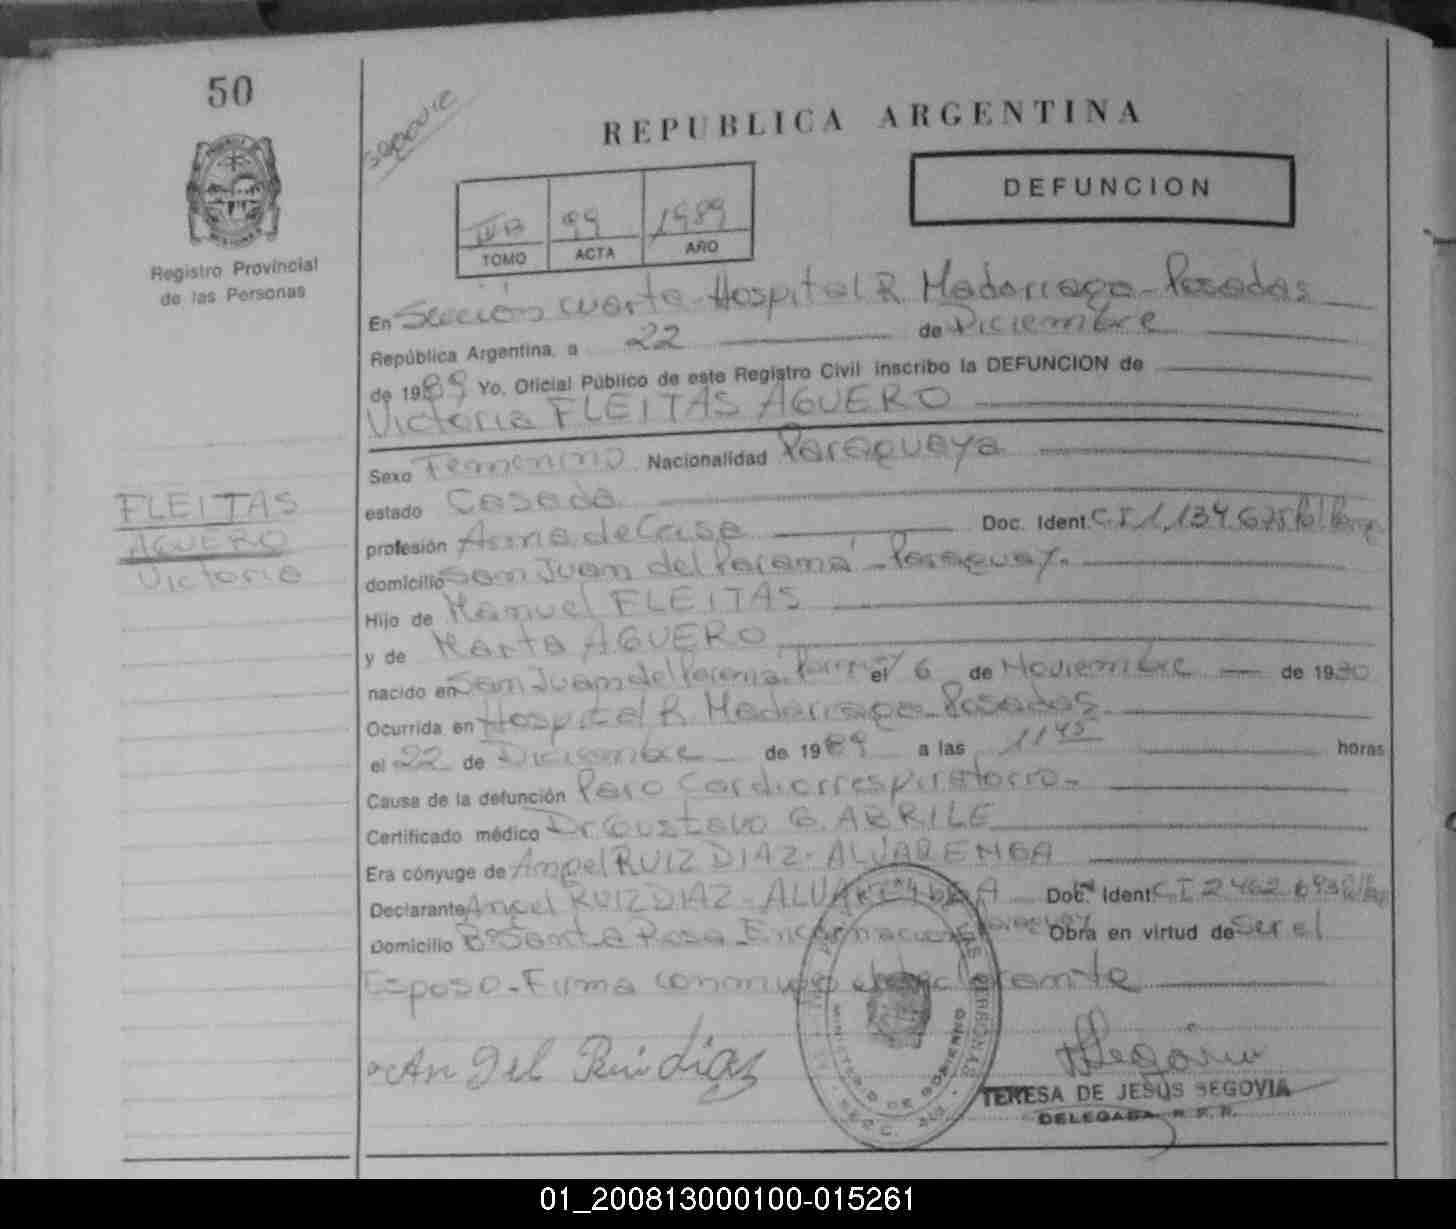 50
Registro Provincial
de las Personas
Segovia
REPUBLICA ARGENTINA
DEFUNCION
99 1989
TOMO ACTA AÑO
En Sección cuarta-Hospital R. Madariaga-Posadas
República Argentina, a 22 de Diciembre
de 1989 Yo, Oficial Público de este Registro Civil inscribo la DEFUNCION de
Victoria FLEITAS AGUERO
Sexo Femenino Nacionalidad Paraguaya
estado Casada
profesión Ama de Casa Doc. Ident. C.I 1,134.675
domicilio San Juan del Paraná-Paraguay.
Hijo de Manuel FLEITAS
y de Marta AGUERO
nacido en San Juan del Paraná, el 6 de Noviembre de 1930
Ocurrida en Hospital R. Madariaga-Posadas
el 22 de Diciembre de 1989 a las 11 45 horas
Causa de la defunción Paro Cardiorrespiratorio-
Certificado médico Dr Gustavo G. ABRILE
Era cónyuge de Angel RUIZ DIAZ-ALVARENGA
Declarante Angel RUIZ DIAZ-ALVARENGA Doc. Ident. C I 2462.693
Domicilio Bº Santa Rosa-Encarnacion Paraguay Obra en virtud de Ser el
Esposo-Firma conmigo el declarante
Angel Ruidiaz
TERESA DE JESÚS SEGOVIA
DELEGADA R. P. P.
MINISTERIO DE GOBIERNO
FLEITAS
AGUERO
Victoria
01_200813000100-015261